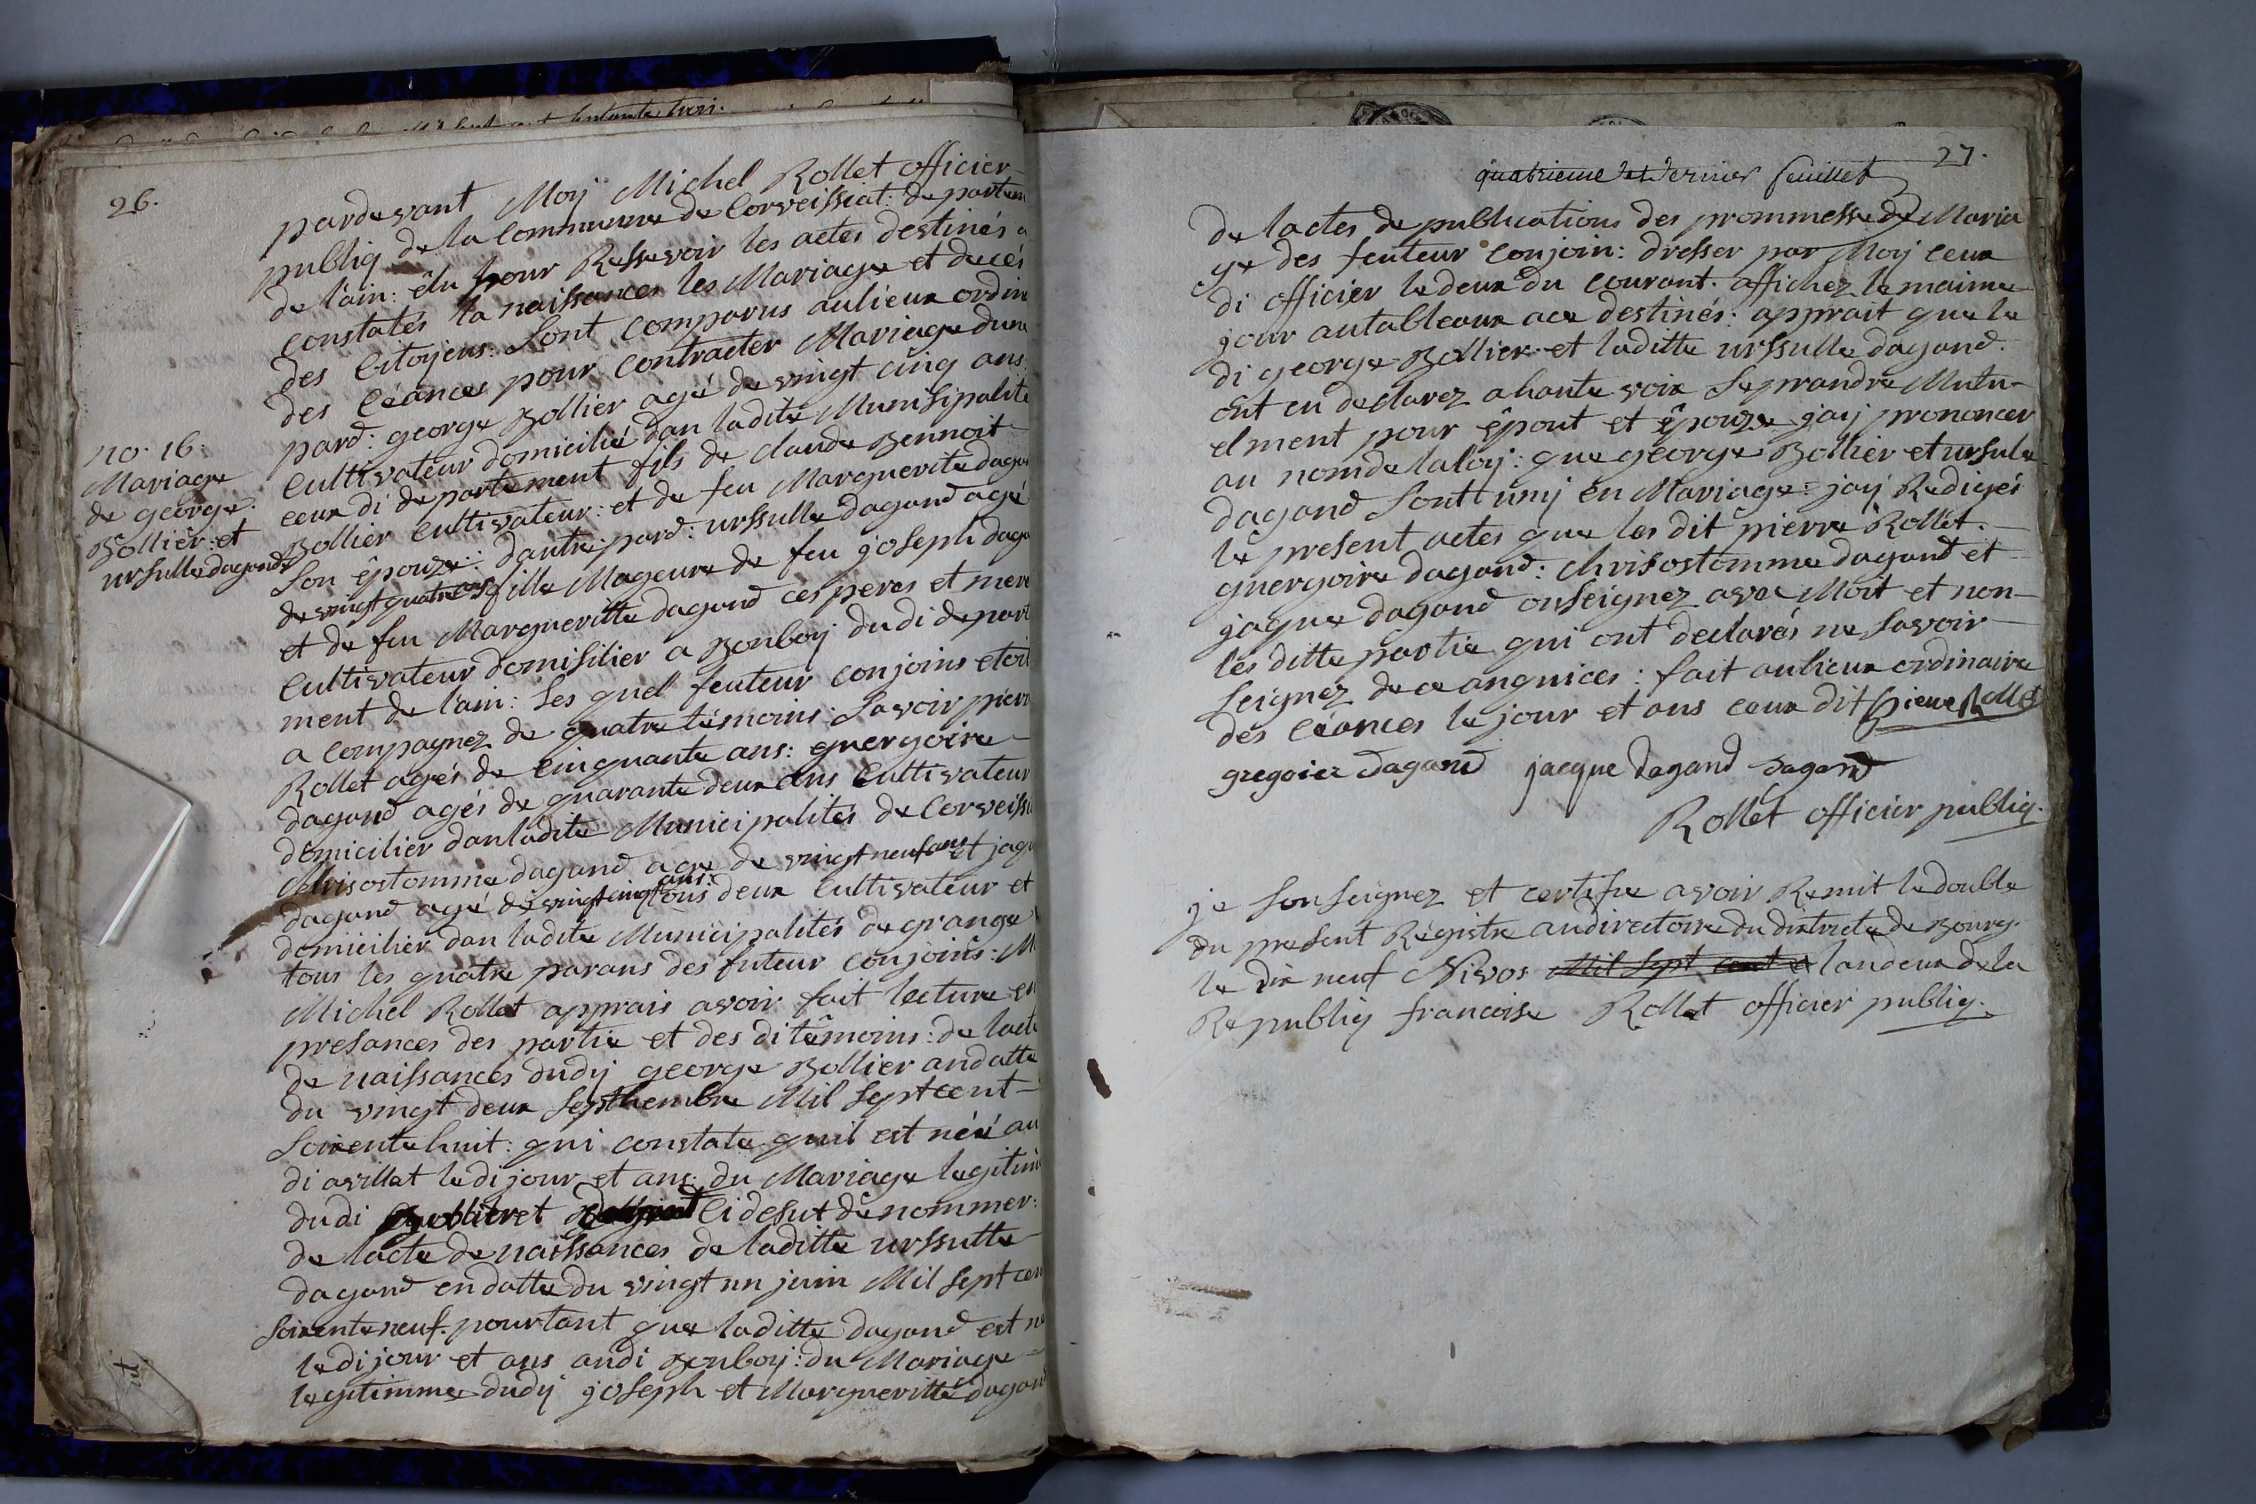 26.
pardevant Moy Michel Rollet officier
publiq de la commune de Corveissiat: departem
de lain: êlu pour Ressevoir les actes destinés a
constatés la naissances les Mariage et decés
des Citoyens: Sont comparus aulieux ordin
des Céances pour contracter Mariage dune
pard: george Bollier agé de vingt cinq ans:
Cultivateur domicilié dan ladite Munisipalité
ceux di departement fils de claude Bennoit
Bollier Cultivateur: et de feu Marguerite dagan
Son êpouze: dautre pard: urssulle dagand agé
de vingt quatre ans fille Mageure de feu joseph daga
et de feu Margueritte dagand ces peres et mere
Cultivateur domisilier a Bonboy dudi depart
ment de lain: Les quel feuteur conjoins etoit
a compagnez de quatre témoins: Savoir pierr
Rollet agés de Cinquante ans: guergoire
dagand agés de quarante deux ans Cultivateur
domicilier dan ladite Municipalités de Corveissi
Chrisostomme dagand agé de vingt neuf ans et jaqu
dagand agé de vingt cinq ans: tous deux Cultivateur et
domicilier dan ladite Municipalités de grange
tous les quatre parans des futeur conjoins: M
Michel Rollet apprais avoir fait lecture en
presances des partie et des di témoins: de lacte
de naissances dudy george Bollier andatte
du vingt deux Septhembre Mil Sept cent
Soixente huit: qui constate quil est néé au
di avillat ledi jour et ans: du Mariage legitim
dudi Bollier et Ci desut dénommer:
de lacte de naissances de laditte urssulle
dagand en datte du vingt un juin Mil Sept cen
Soixente neuf. pourtant que laditte dagand est né
le di jour et ans audi Bonboy: du Mariage
legitimme dudy joseph et Margueritte dagan
no. 16.
Mariage
de george.
Bollier: et
urssulle dagand
27.
quatrieme et dernier feuillet
de lactes de publications des prommesse de Maria
ge des feuteur conjoin: dresser par Moy ceux
di officier le deux du courant. affichez le maime
jour au tableaux a ce destinés: apprait que le
di george Bollier et laditte urssulle dagand.
ont eu declarez a haute voix Se prandre Mutu
elment pour êpout et êpouze jay prononcer
au nom de laloy: que george Bollier et ursule
dagand Sont uny en Mariage: jay Redigés
le present actes que les dit pierre Rollet.
guergoire dagand: chrisostomme dagand et
jaque dagand on Seignez avec Moit et non
les ditte partie qui ont declarés ne Savoir
Seignez de ce anquices: fait aulieux ordinaire
des Céances le jour et ans ceux dit pierre Rollet
gregoier dagand jacque dagand dagand
Rollet officier publiq.
je Sonseignez et certifie avoir Remit le double
du present Régistre audirectoire du distrite de Bourg.
le dix neuf Nivos Mil Sept cent landeux de la
Republiq francoise Rollet officier publiq.